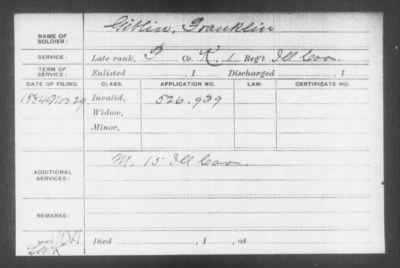 NAME OF SOLDIER: Giblin, Franklin
SERVICE: Late rank, P Co. K, 1 Reg't Ill Cav.
TERM OF SERVICE: Enlisted , 1 Discharged , 1
DATE OF FILING. CLASS. APPLICATION NO. LAW. CERTIFICATE NO.
1884 Nov 29 Invalid, 526.939
Widow,
Minor,
ADDITIONAL SERVICES: M. 15 Ill Cav.
REMARKS:
Died , 1 , at